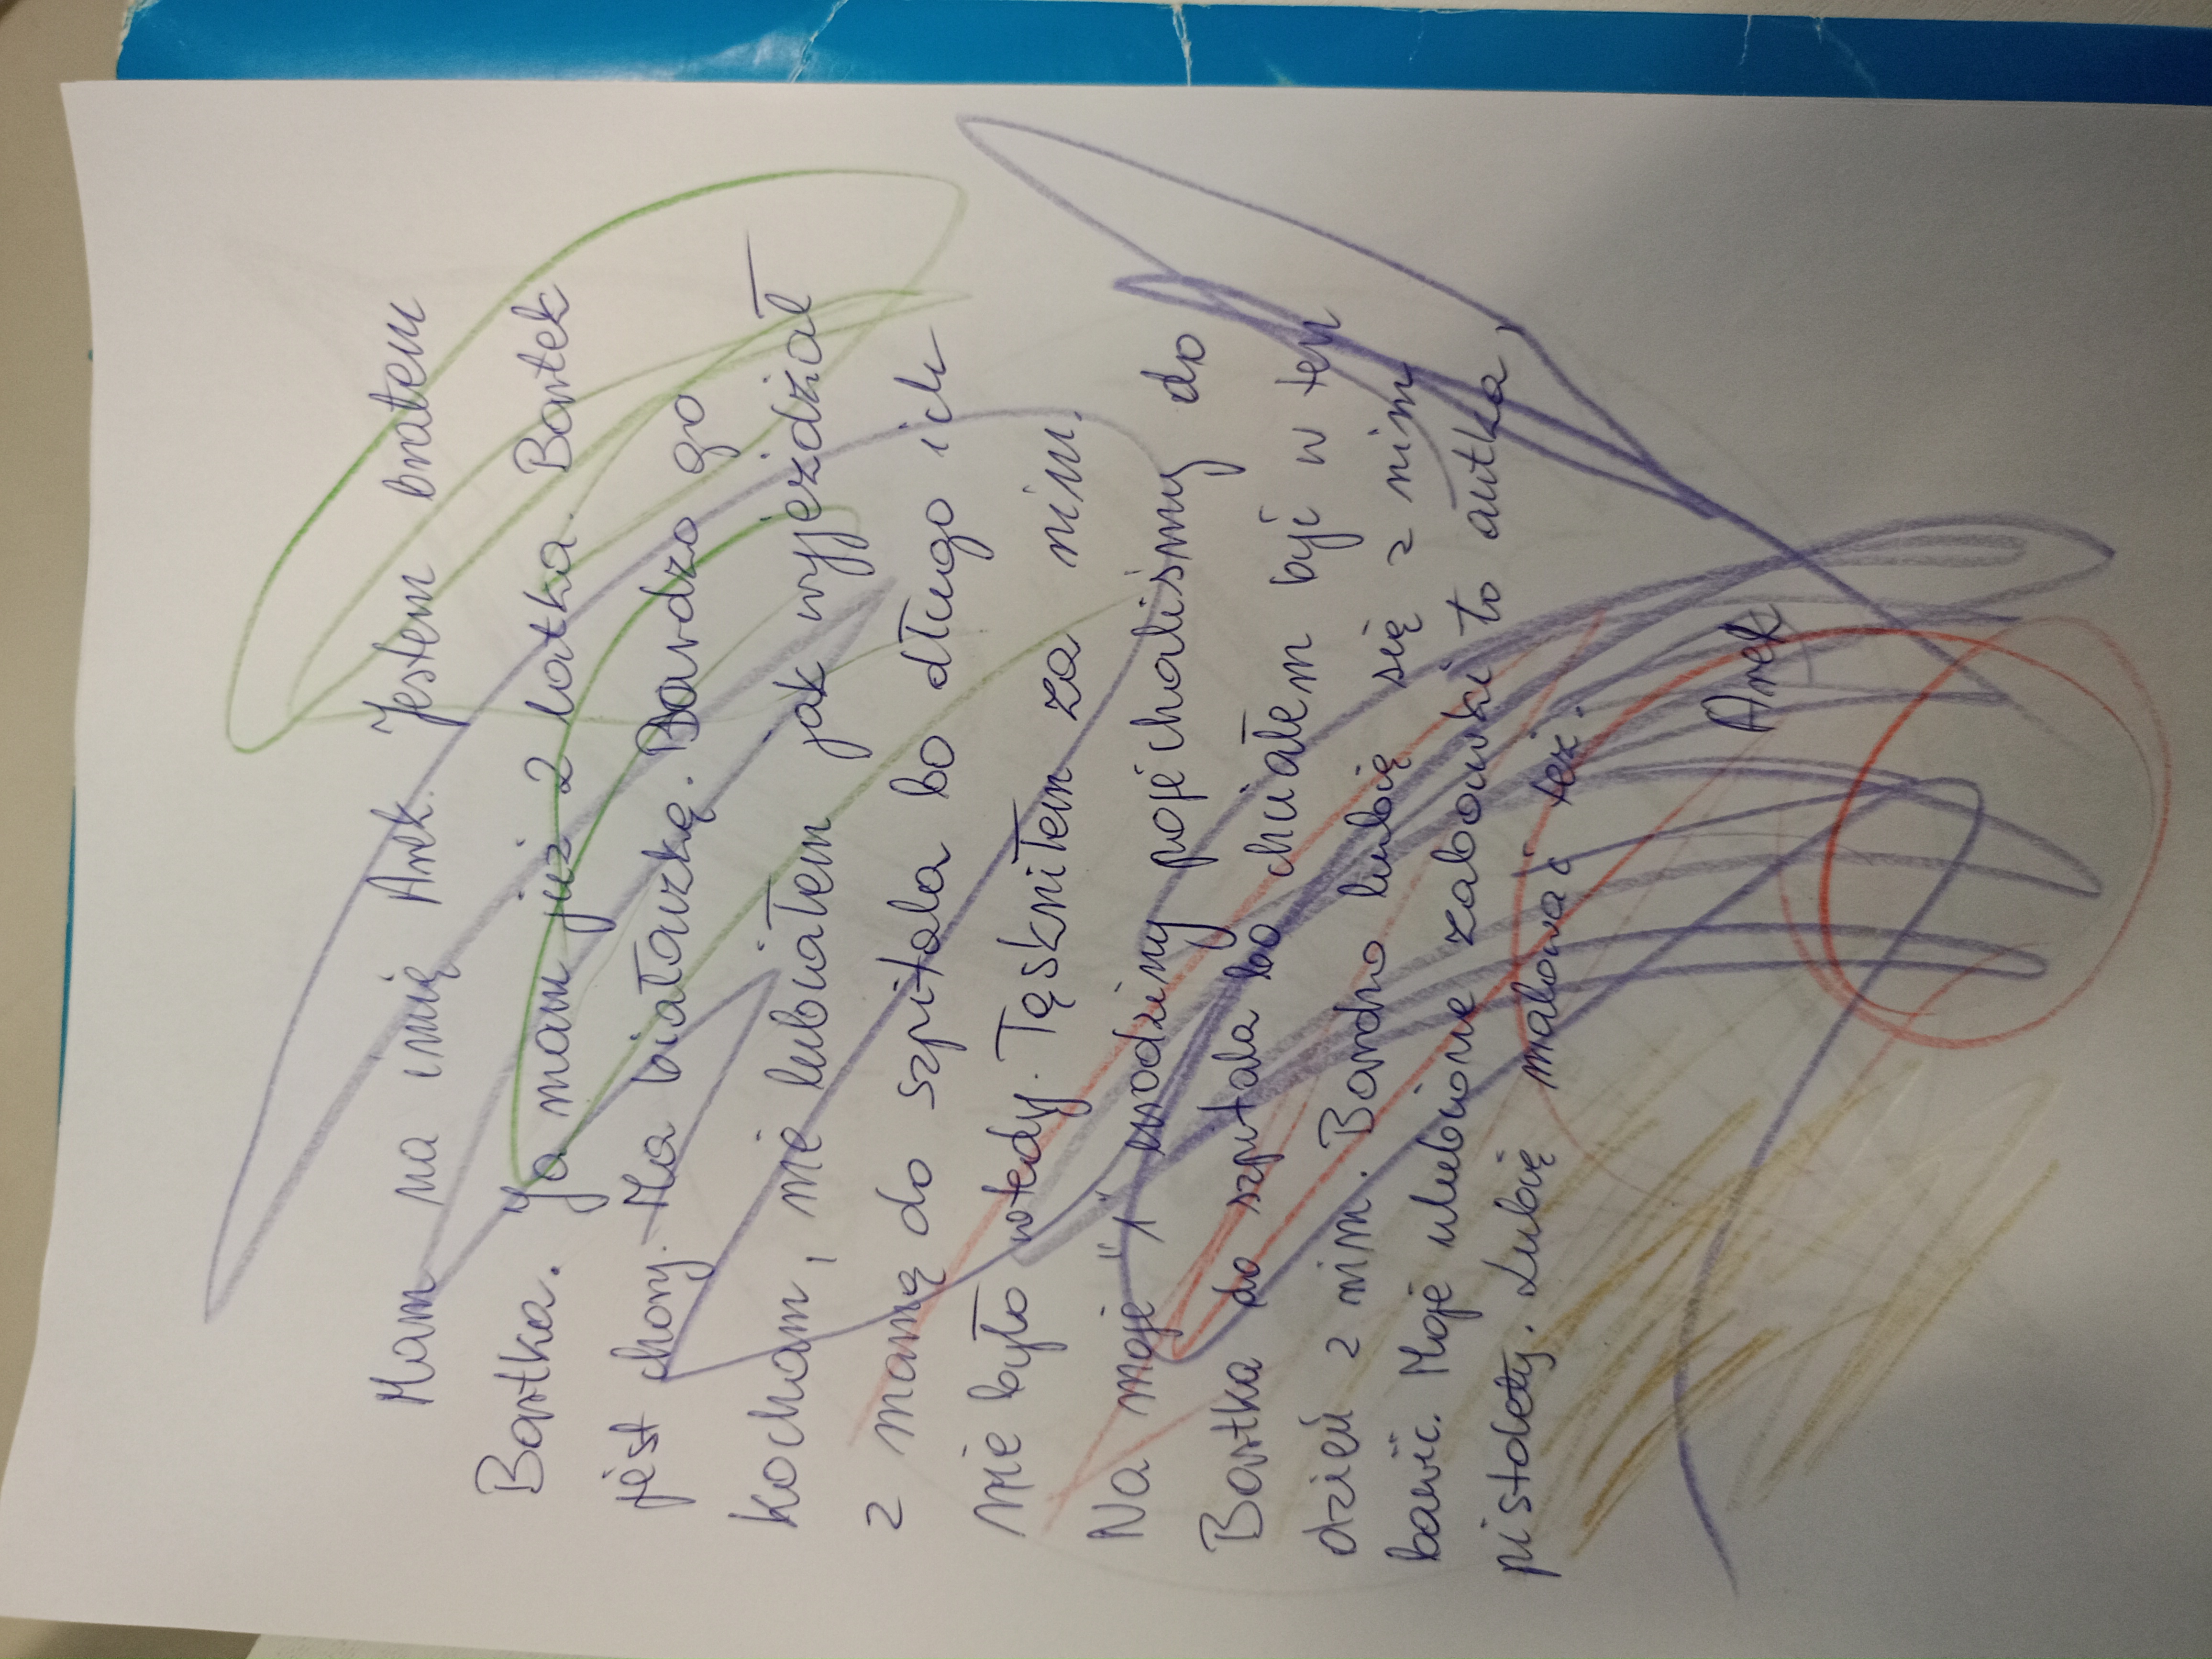 Mam na imię Arek. Jestem bratem
Bartka. Ja mam już 2 latka. Bartek
jest chory. Ma białaczkę. Bardzo go
kocham, nie lubiałem jak wyjeżdżał
z mamą do szpitala bo długo ich
nie było wtedy. Tęskniłem za nim.
Na moje "1" urodziny pojechaliśmy do
Bartka do szpitala bo chciałem być w ten
dzień z nim. Bardzo lubię się z nim
bawić. Moje ulubione zabawki to autka,
pistolety. Lubię malować też.
Arek